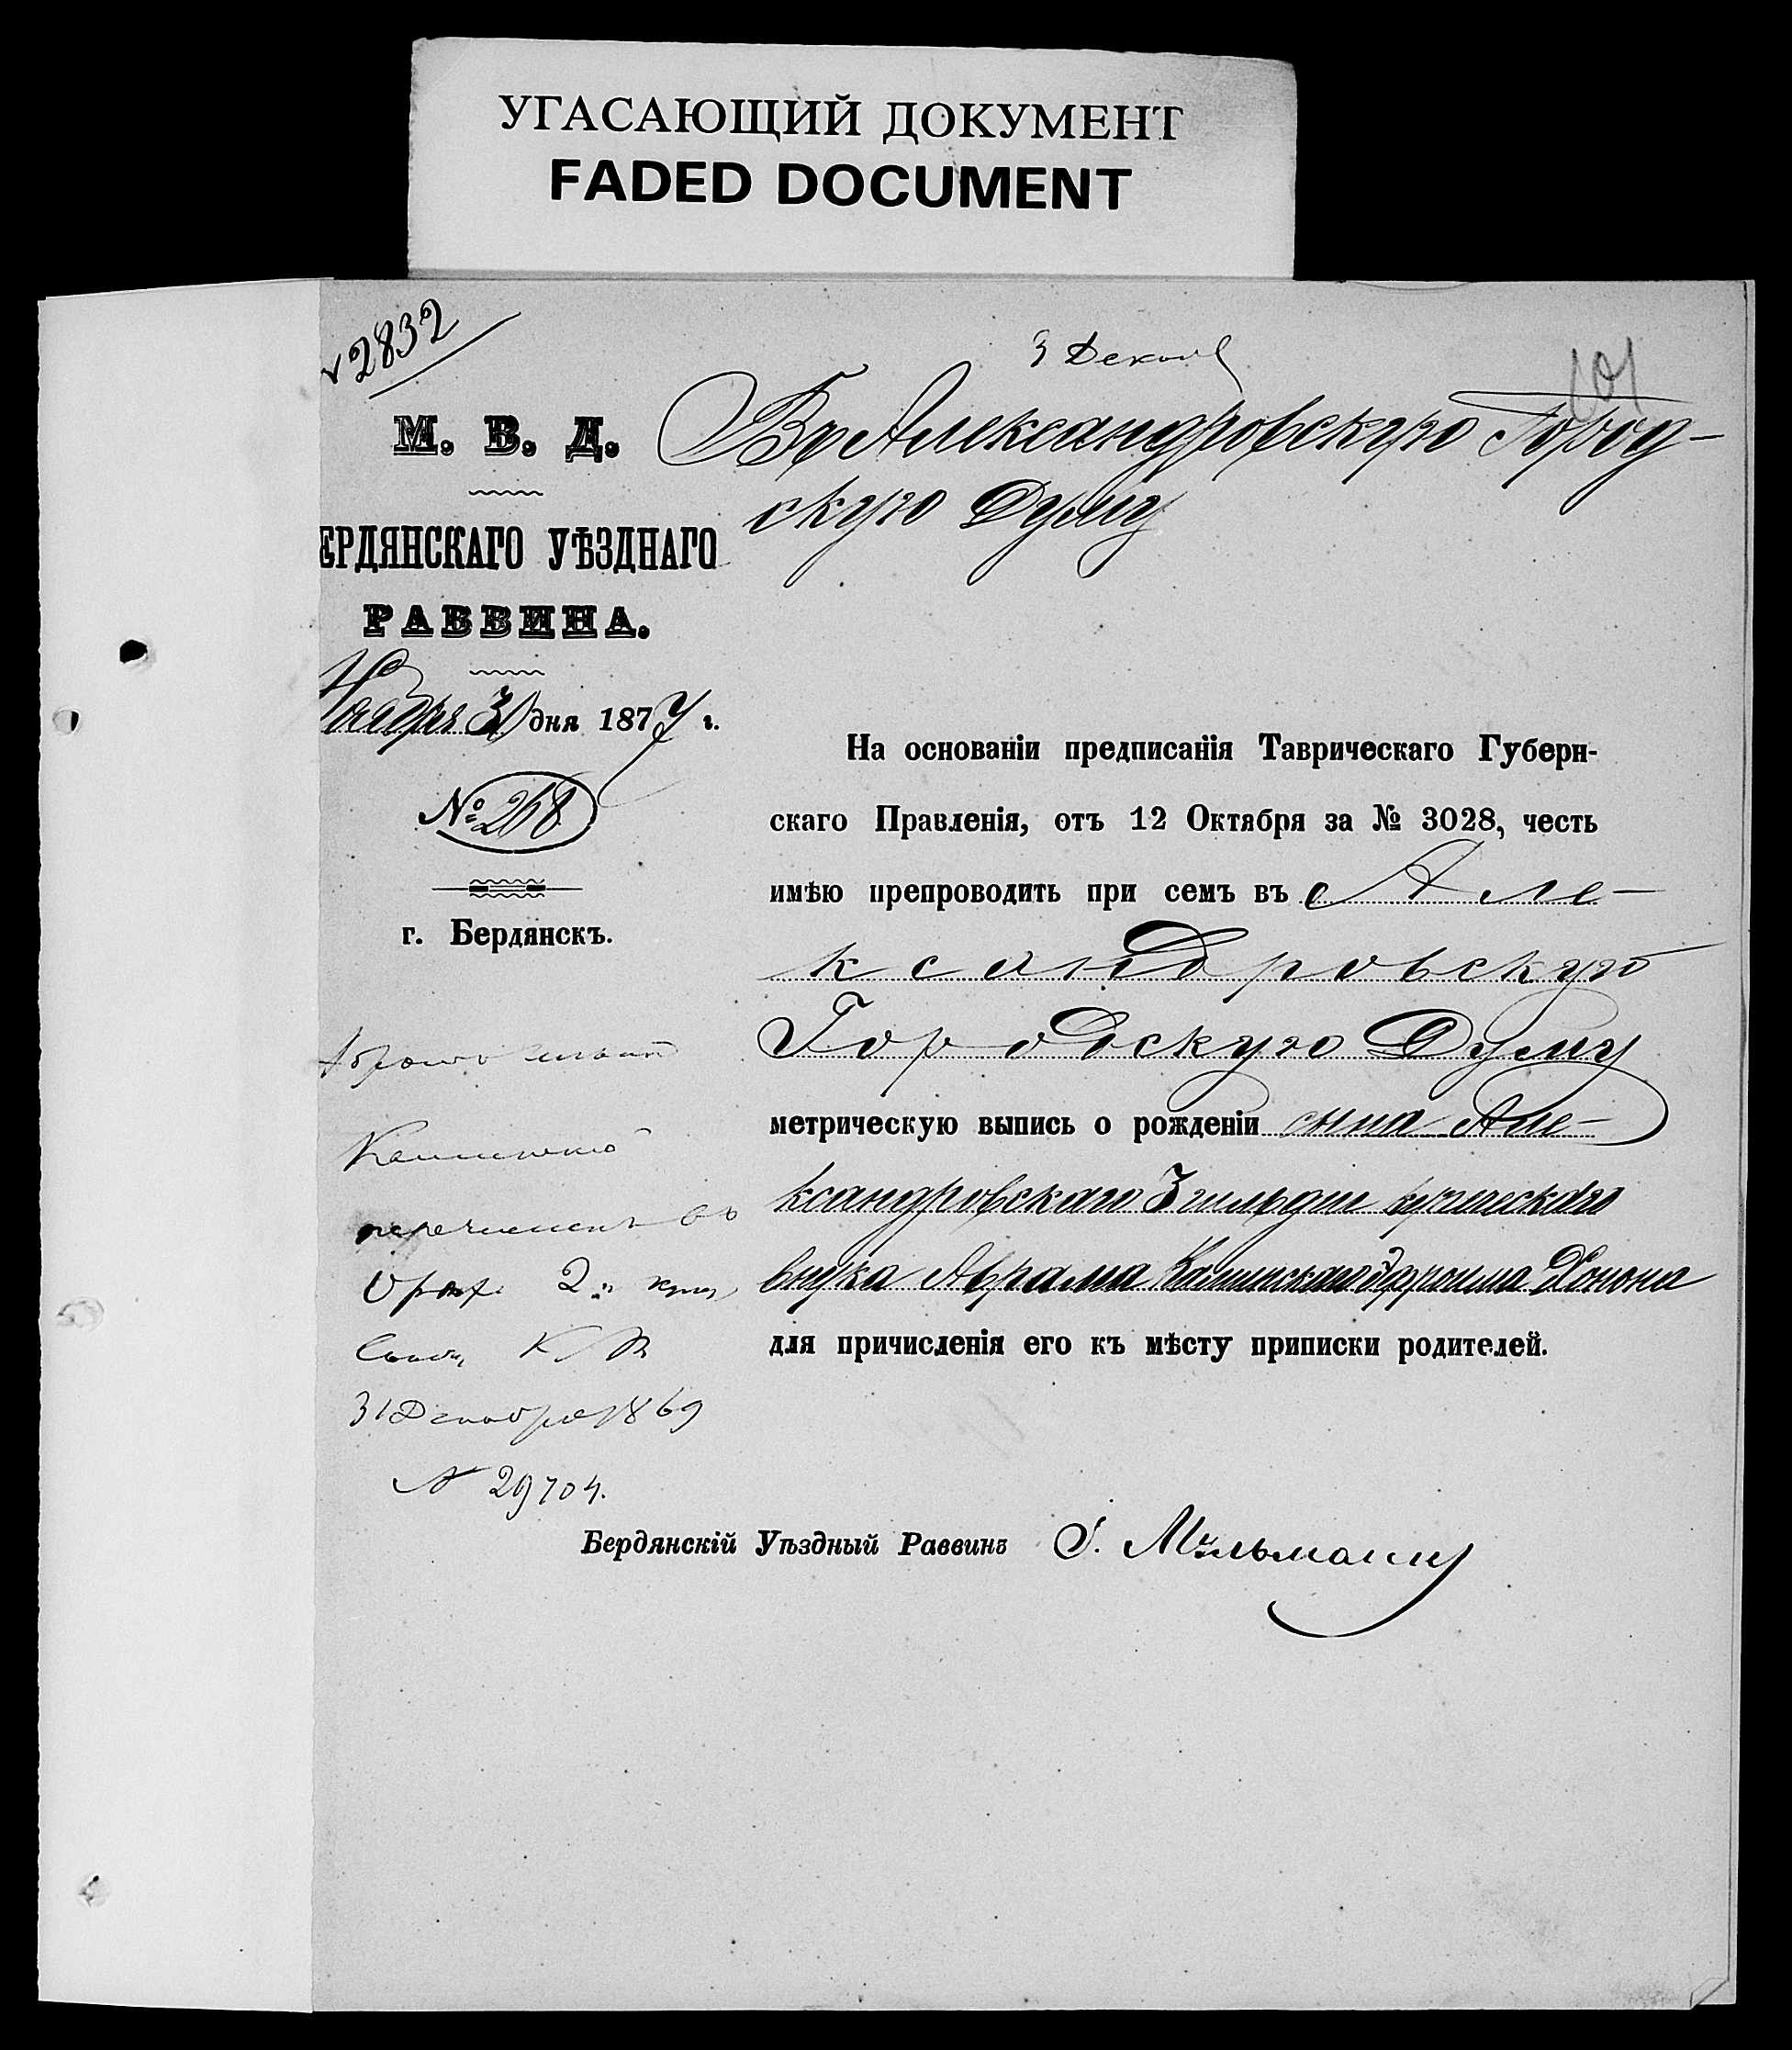 УГАСАЮЩИЙ ДОКУМЕНТ
FADED DOCUMENT
2832
3 Декаб
101
М. В. Д.
ЕРДЯНСКАГО УѢЗДНАГО
РАВВИНА.
Ноября 30 дня 1877 г.
№ 268
г. Бердянскъ.
Въ Александровскую Город-
скую Думу
На основаніи предписанія Таврическаго Губерн-
скаго Правленія, отъ 12 Октября за № 3028, честь
имѣю препроводить при семъ въ Але-
ксандровскую
Городскую Думу
метрическую выпись о рожденіи сына Але-
ксандровскаго 3 гильдіи купеческаго
внука Аврама Каминскаго Эфроима Хонона
для причисленія его къ мѣсту приписки родителей.
перечисленъ въ
Орѣх. 2й куп
К П
31 Декабря 1869
№ 29704.
Бердянскій Уѣздный Раввинъ